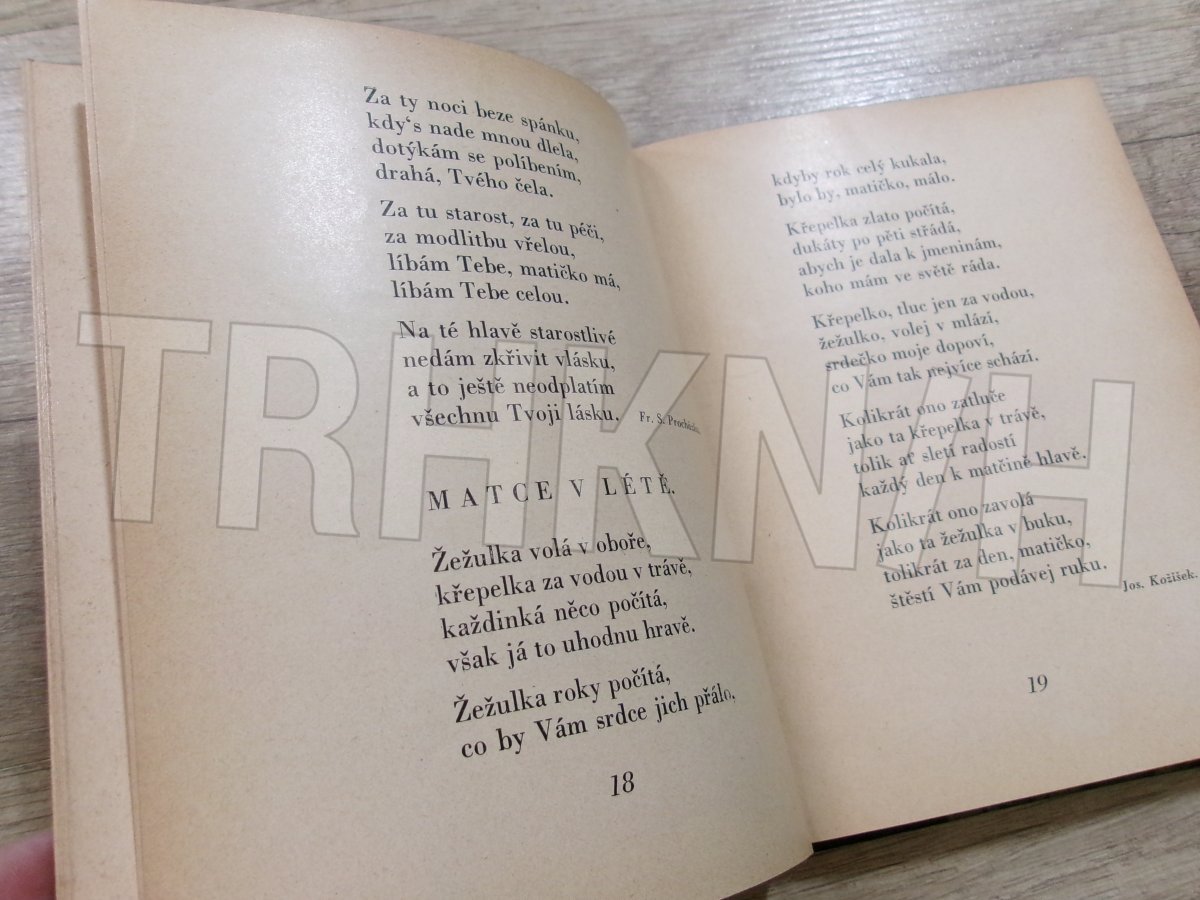 Za ty noci beze spánku,
kdy‘s nade mnou dlela,
dotýkám se políbením,
drahá, Tvého čela.
Za tu starost, za tu péči,
za modlitbu vřelou,
líbám Tebe, matičko má,
líbám Tebe celou.
Na té hlavě starostlivé
nedám zkřivit vlásku,
a to ještě neodplatím
všechnu Tvoji lásku.
Fr. S. Procházka.
MATCE V LÉTĚ.
Žežulka volá v oboře,
křepelka za vodou v trávě,
každinká něco počítá,
však já to uhodnu hravě.
Žežulka roky počítá,
co by Vám srdce jich přálo,
18
kdyby rok celý kukala,
bylo by, matičko, málo.
Křepelka zlato počítá,
dukáty po pěti střádá,
abych je dala k jmeninám,
koho mám ve světě ráda.
Křepelko, tluc jen za vodou,
žežulko, volej v mlází,
srdečko moje dopoví,
co Vám tak nejvíce schází.
Kolikrát ono zatluče
jako ta křepelka v trávě,
tolik ať sletí radostí
každý den k matčině hlavě.
Kolikrát ono zavolá
jako ta žežulka v buku,
tolikrát za den, matičko,
štěstí Vám podávej ruku.
Jos. Kožíšek.
19
TRHKNIH